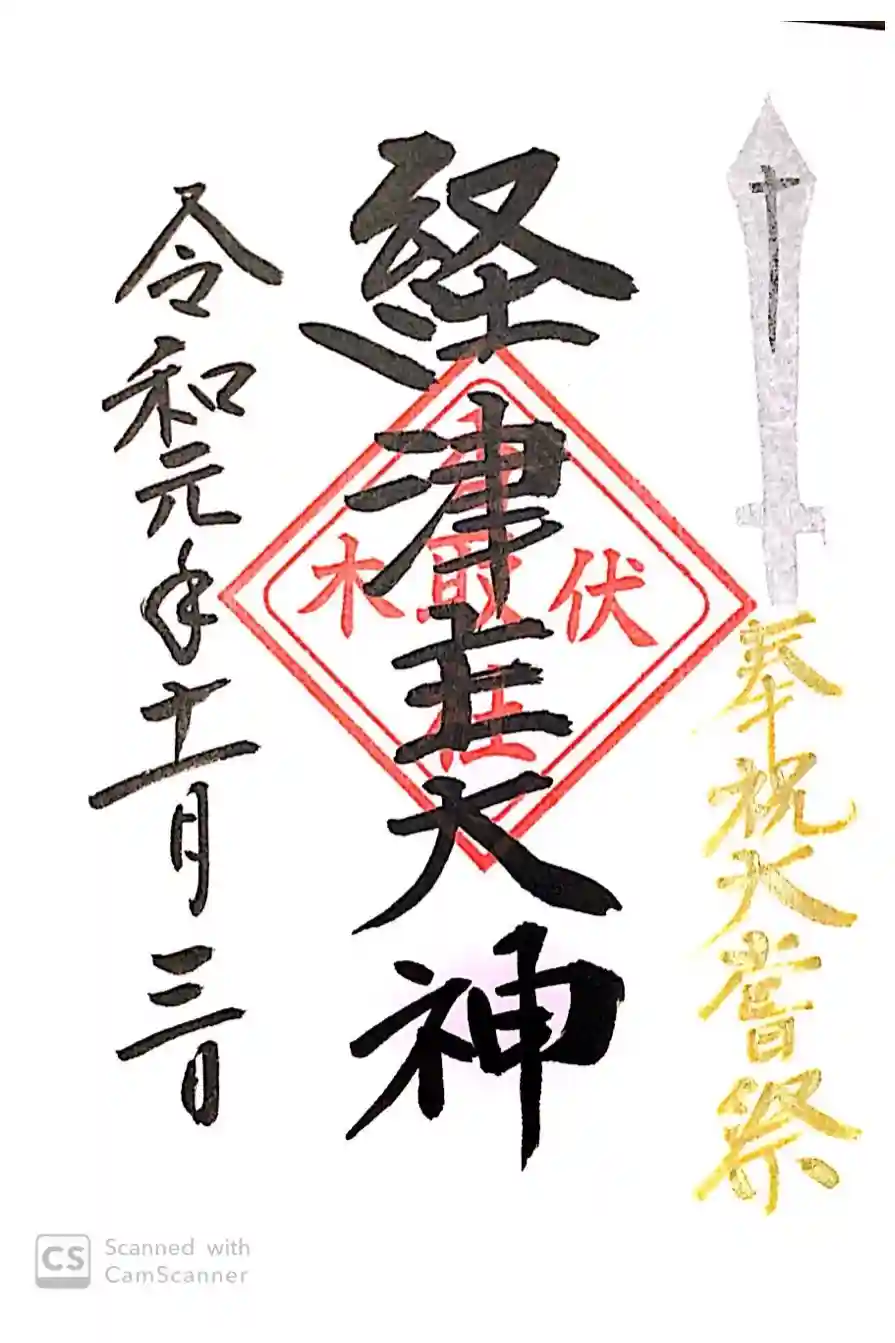 奉祝大嘗祭
経津主大神
香取社
伏木
令和元年十一月三日
CS Scanned with
CamScanner